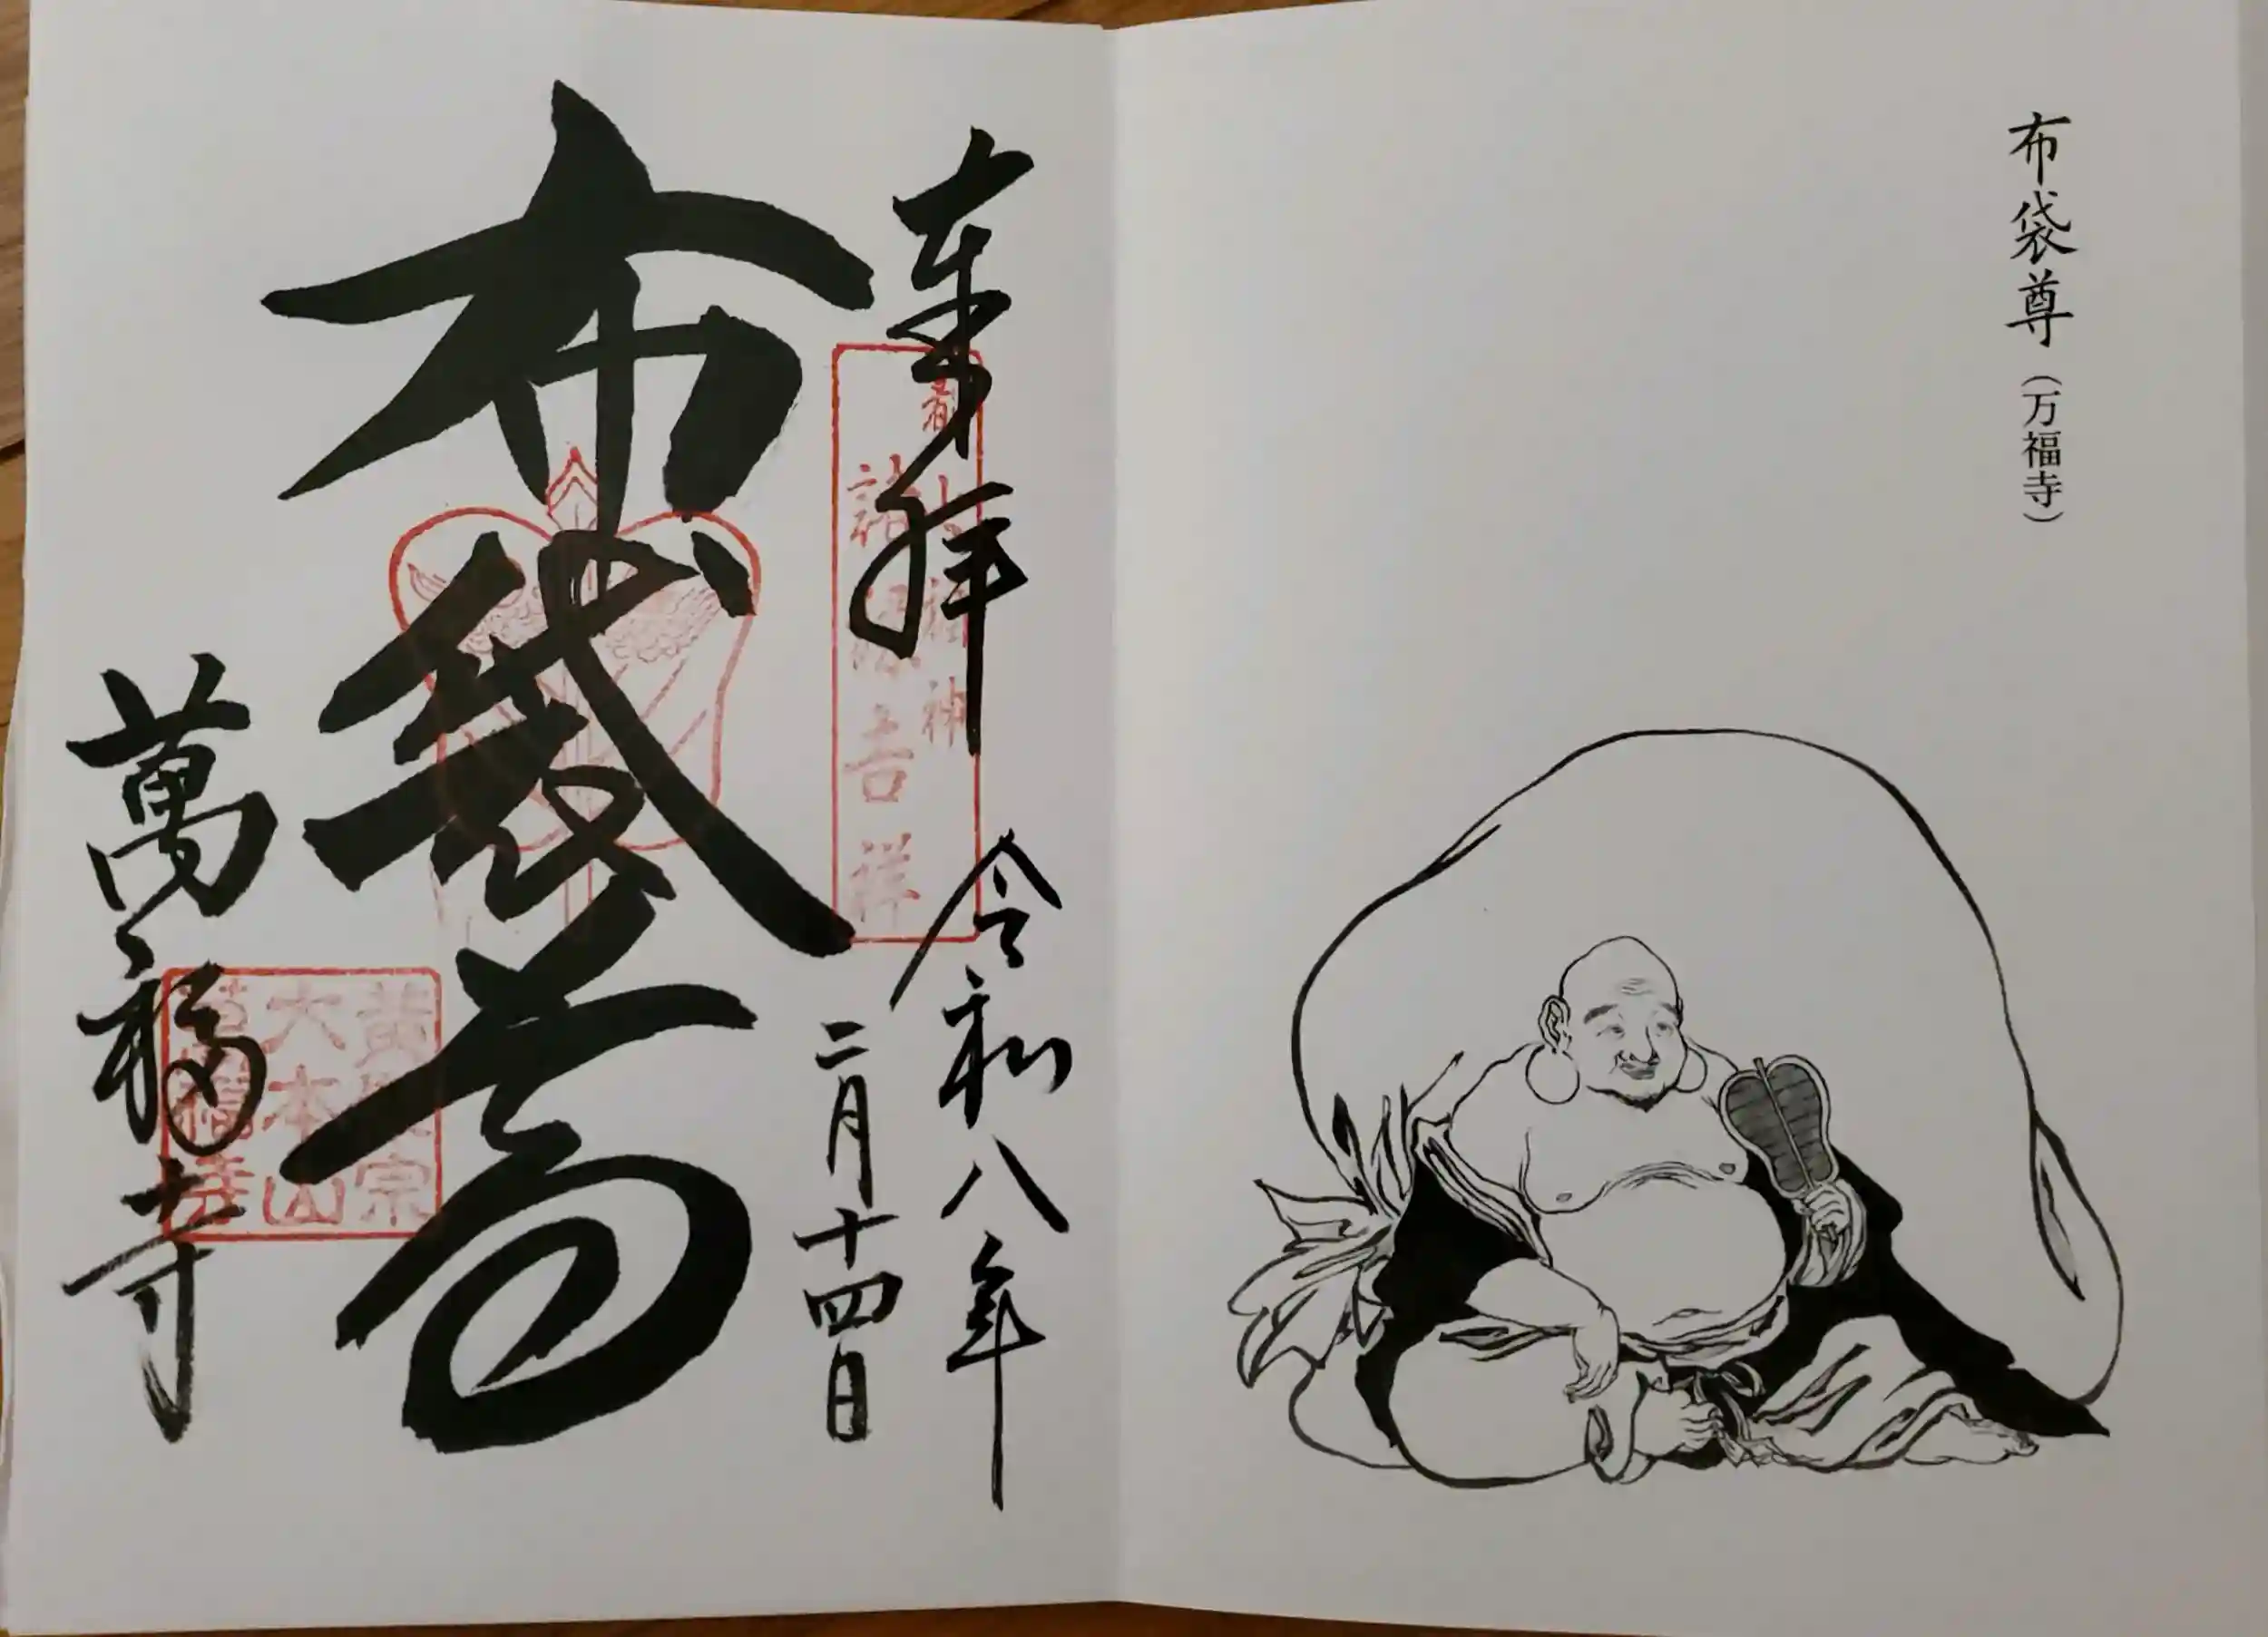 布袋尊（万福寺）
奉拝
令和八年
二月十四日
布袋尊
萬福寺
諸縁吉祥
黄檗宗
大本山
萬福寺